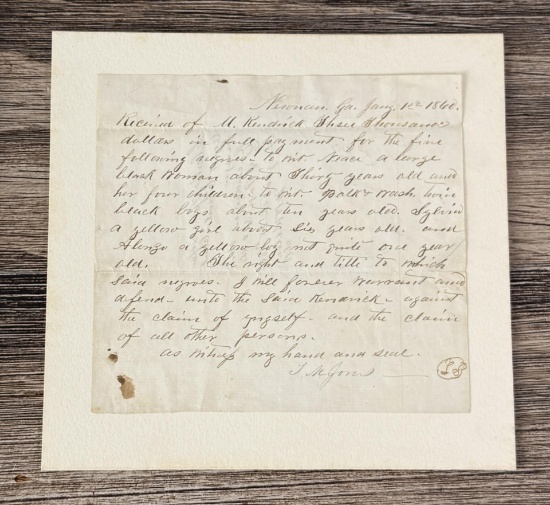 Newnan, Ga. Jany 1st 1860.
Received of M. Kendrick Three Thousand
dollars in full payment, for the five
following negroes- to wit a large
black woman about Thirty years old and
her four children- to wit- Polk & Wash twin
black boys about ten years old.
a yellow girl about Six years old- and
Alonzo a yellow boy not quite one year
old. The right and title to which
Said negroes- I will forever warrant and
defend- unto the Said Kendrick- against
the claim of myself- and the claim
of all other persons.
as witness my hand and seal.
Jones
LS